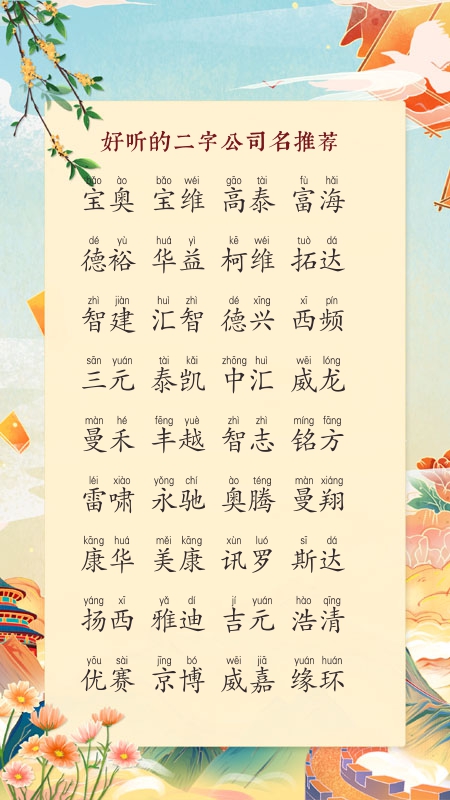 好听的二字公司名推荐
bǎo ào bǎo wéi gāo tài fù hǎi
宝奥 宝维 高泰 富海
dé yù huá yì kē wéi tuò dá
德裕 华益 柯维 拓达
zhì jiàn huì zhì dé xīng xī pín
智建 汇智 德兴 西频
sān yuán tài kǎi zhōng huì wēi lóng
三元 泰凯 中汇 威龙
màn hé fēng yuè zhì zhì míng fāng
曼禾 丰越 智志 铭方
léi xiào yǒng chí ào téng màn xiáng
雷啸 永驰 奥腾 曼翔
kāng huá měi kāng xùn luó sī dá
康华 美康 讯罗 斯达
yáng xī yǎ dí jí yuán hào qīng
扬西 雅迪 吉元 浩清
yōu sài jīng bó wēi jiā yuán huán
优赛 京博 威嘉 缘环